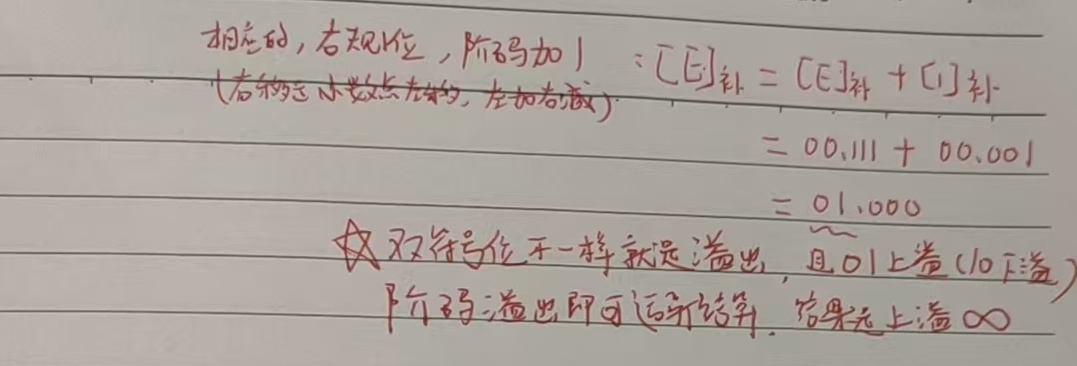 相应的，右规1位，阶码加1：[E]补 = [E]补 + [1]补
(右移是小数点左移，左加右减)
= 00.111 + 00.001
= 01.000
☆双符号位不一样就是溢出，且01上溢(10下溢)
阶码溢出即可运算结算．结果是上溢∞